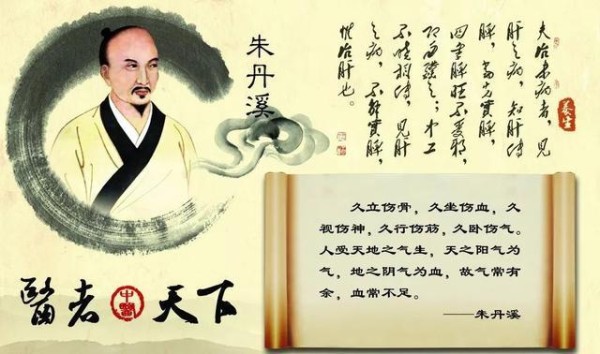 朱丹溪
夫治未病者，見
肝之病，知肝傳
脾，當先實脾，
四季脾旺不受邪，
即勿補之；中工
不曉相傳，見肝
之病，不解實脾，
惟治肝也。
养生
久立伤骨，久坐伤血，久
视伤神，久行伤筋，久卧伤气。
人受天地之气生，天之阳气为
气，地之阴气为血，故气常有
余，血常不足。
——朱丹溪
醫者中醫天下